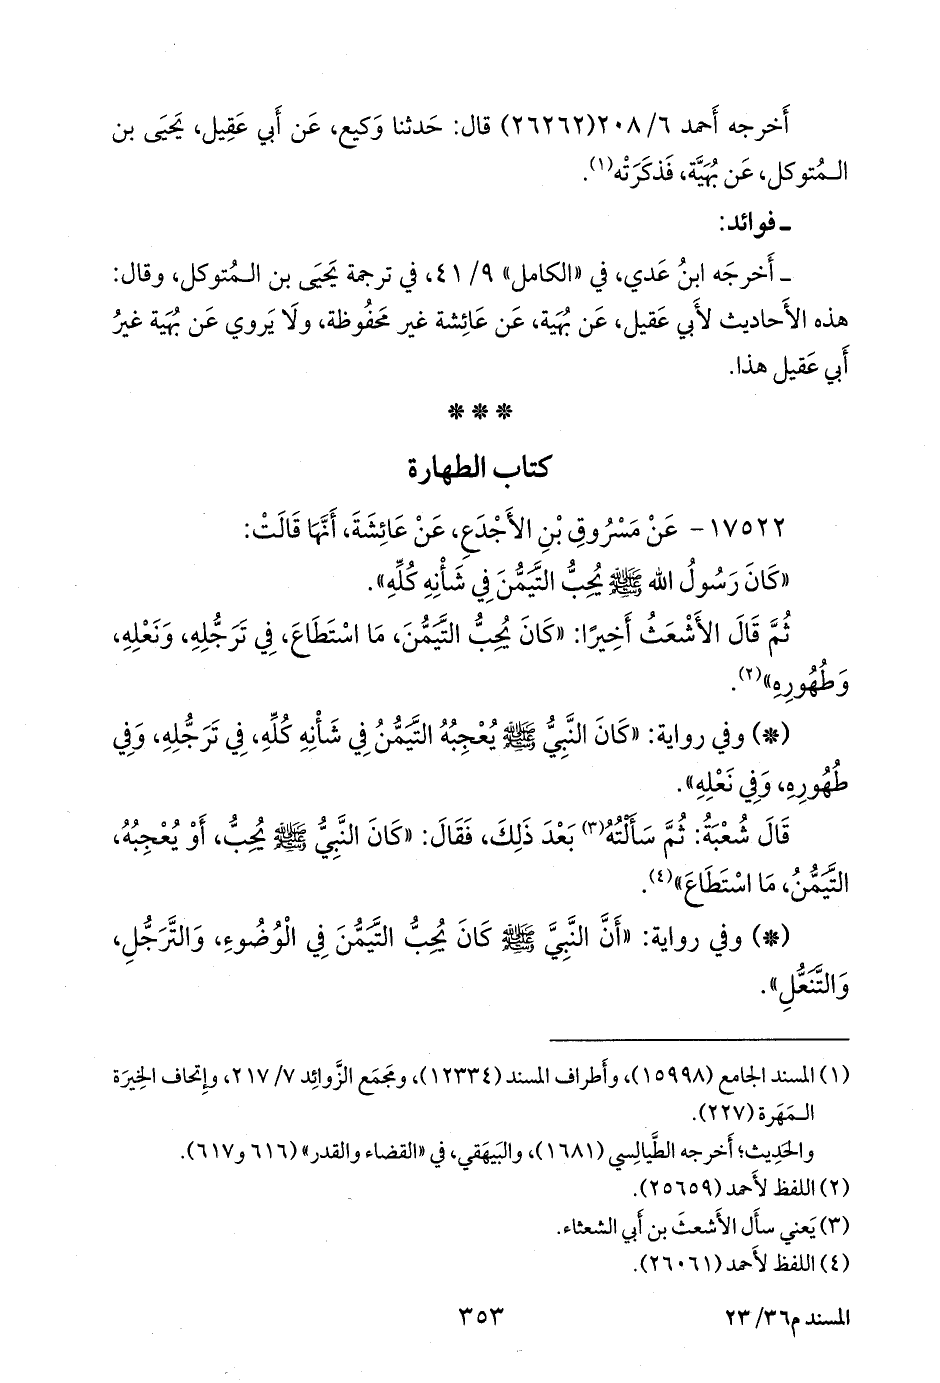 أَخرجه أَحمد ٦/ ٢٠٨(٢٦٢٦٢) قال: حَدثنا وَكيع، عَن أَبي عَقِيل، يَحيَى بن
الـمُتوكل، عَن بُهَيَّة، فَذكَرَتْه(١).
ـ فوائد:
ـ أَخرجَه ابنُ عَدي، في «الكامل» ٩/ ٤١، في ترجمة يَحيَى بن الـمُتوكل، وقال:
هذه الأَحاديث لأَبي عَقيل، عَن بُهَية، عَن عَائِشة غير مَحفُوظة، ولَا يَروي عَن بُهَية غيرُ
أَبي عَقيل هذا.
* * *
كتاب الطهارة
١٧٥٢٢- عَنْ مَسْرُوقِ بْنِ الأَجْدَعِ، عَنْ عَائِشَةَ، أَنَّهَا قَالَتْ:
«كَانَ رَسُولُ الله ﷺ يُحِبُّ التَّيَمُّنَ فِي شَأْنِهِ كُلِّهِ».
ثُمَّ قَالَ الأَشْعَثُ أَخِيرًا: «كَانَ يُحِبُّ التَّيَمُّنَ، مَا اسْتَطَاعَ، فِي تَرَجُّلِهِ، وَنَعْلِهِ،
وَطُهُورِهِ»(٢).
(*) وفي رواية: «كَانَ النَّبِيُّ ﷺ يُعْجِبُهُ التَّيَمُّنُ فِي شَأْنِهِ كُلِّهِ، فِي تَرَجُّلِهِ، وَفِي
طُهُورِهِ، وَفِي نَعْلِهِ».
قَالَ شُعْبَةُ: ثُمَّ سَأَلْتُهُ(٣) بَعْدَ ذَلِكَ، فَقَالَ: «كَانَ النَّبِيُّ ﷺ يُحِبُّ، أَوْ يُعْجِبُهُ،
التَّيَمُّنُ، مَا اسْتَطَاعَ»(٤).
(*) وفي رواية: «أَنَّ النَّبِيَّ ﷺ كَانَ يُحِبُّ التَّيَمُّنَ فِي الْوُضُوءِ، وَالتَّرَجُّلِ،
وَالتَّنَعُّلِ».
(١) المسند الجامع (١٥٩٩٨)، وأَطراف المسند (١٢٣٣٤)، ومَجمَع الزَّوائِد ٧/ ٢١٧، وإِتحاف الخِيرَة
الـمَهَرة (٢٢٧).
والحَدِيث؛ أَخرجه الطَّيالِسي (١٦٨١)، والبَيهَقي، في «القضاء والقدر» (٦١٦ و٦١٧).
(٢) اللفظ لأَحمد (٢٥٦٥٩).
(٣) يَعني سأَل الأَشعثَ بن أَبي الشعثاء.
(٤) اللفظ لأَحمد (٢٦٠٦١).
المسند م٣٦/ ٢٣
٣٥٣